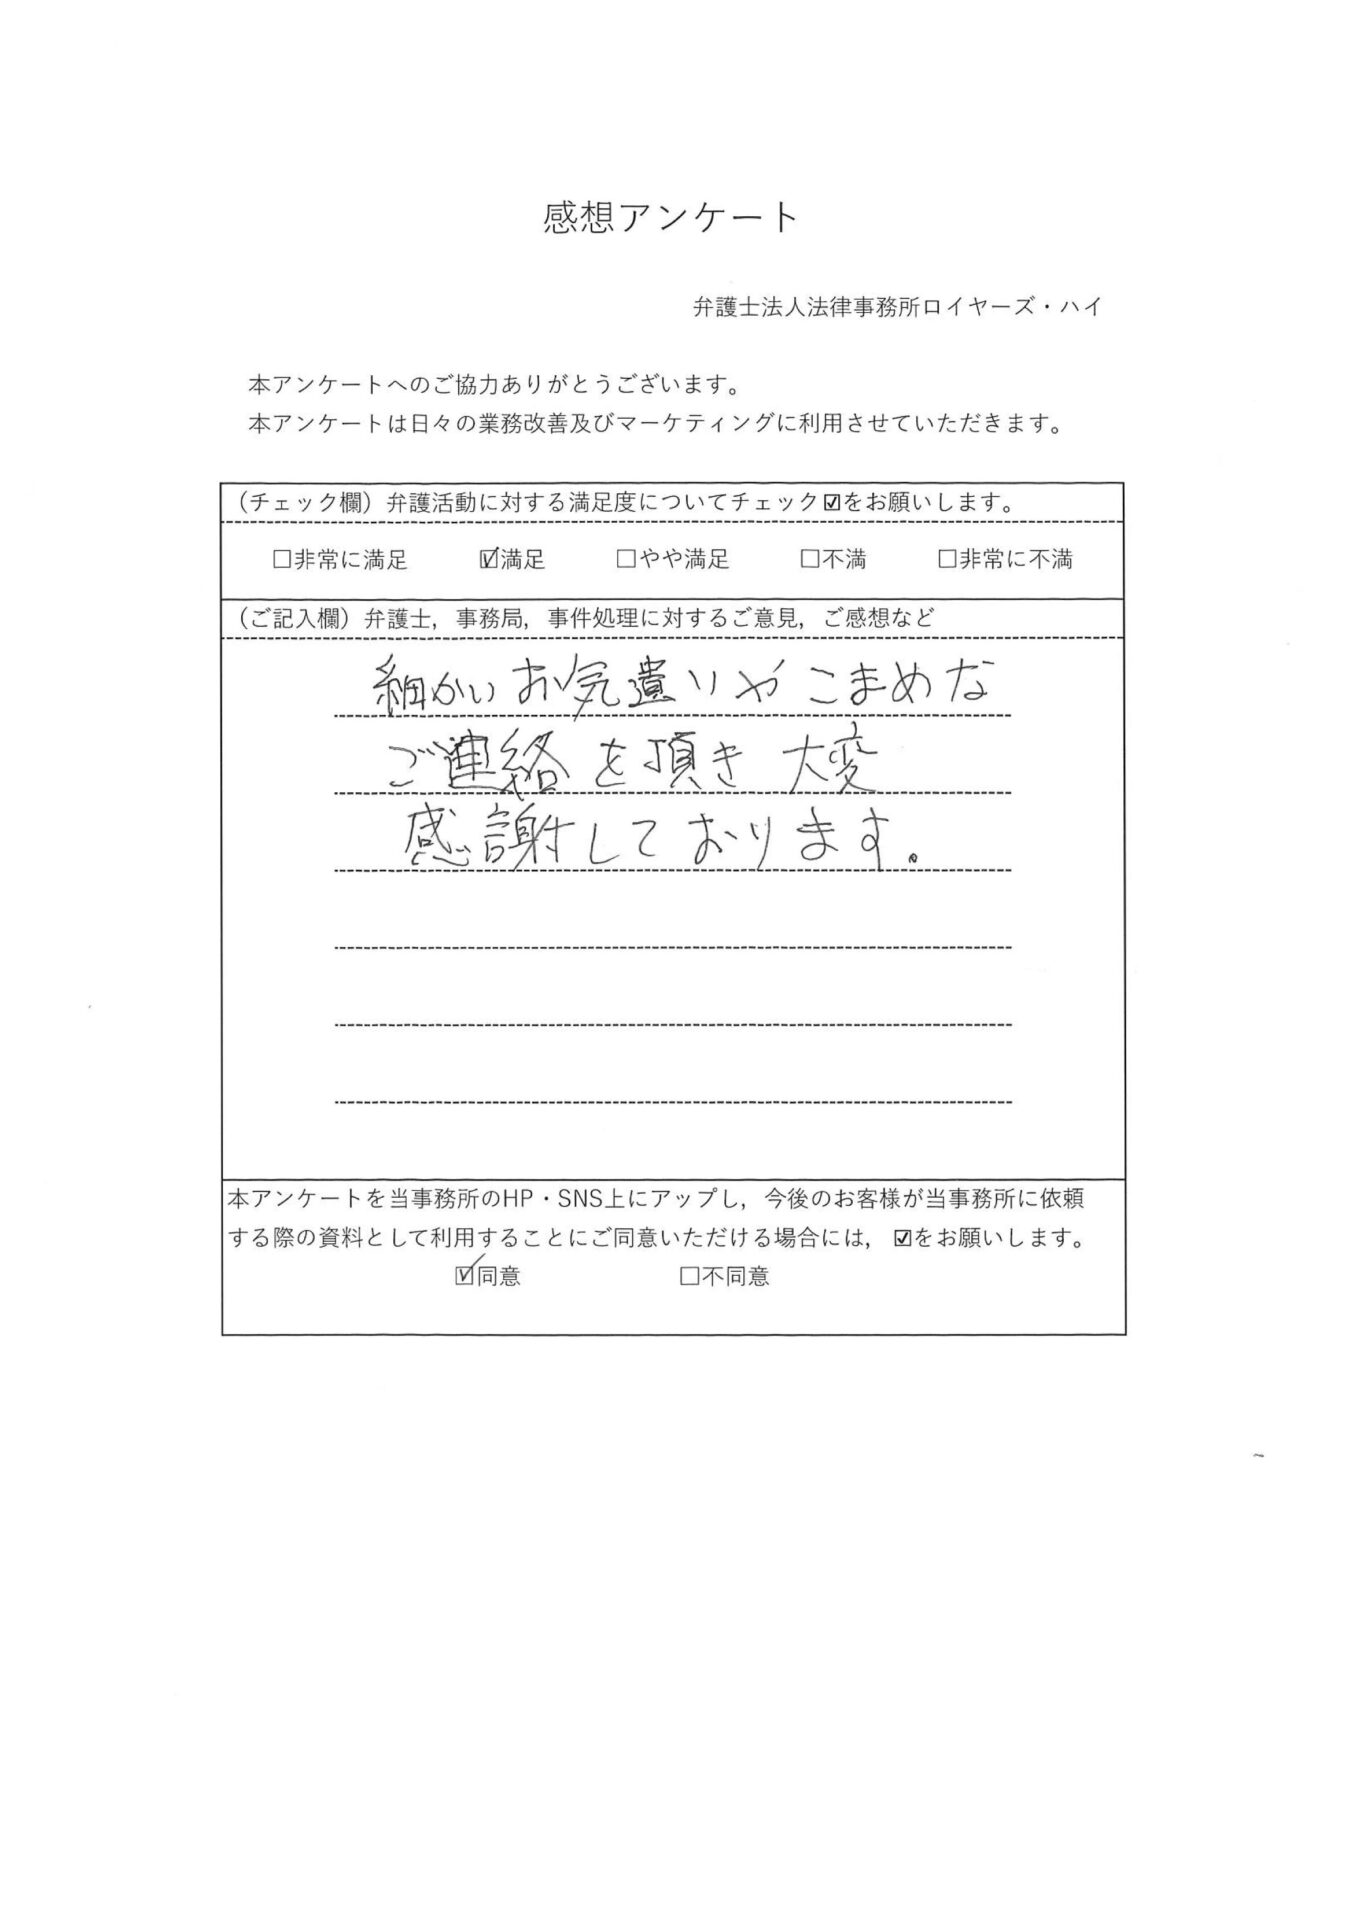 感想アンケート
弁護士法人法律事務所ロイヤーズ・ハイ
本アンケートへのご協力ありがとうございます。
本アンケートは日々の業務改善及びマーケティングに利用させていただきます。
（チェック欄）弁護活動に対する満足度についてチェック☑をお願いします。
□非常に満足 ☑満足 □やや満足 □不満 □非常に不満
（ご記入欄）弁護士，事務局，事件処理に対するご意見，ご感想など
細かいお気遣いやこまめな
ご連絡を頂き大変
感謝しております。
本アンケートを当事務所のHP・SNS上にアップし，今後のお客様が当事務所に依頼
する際の資料として利用することにご同意いただける場合には，☑をお願いします。
☑同意 □不同意